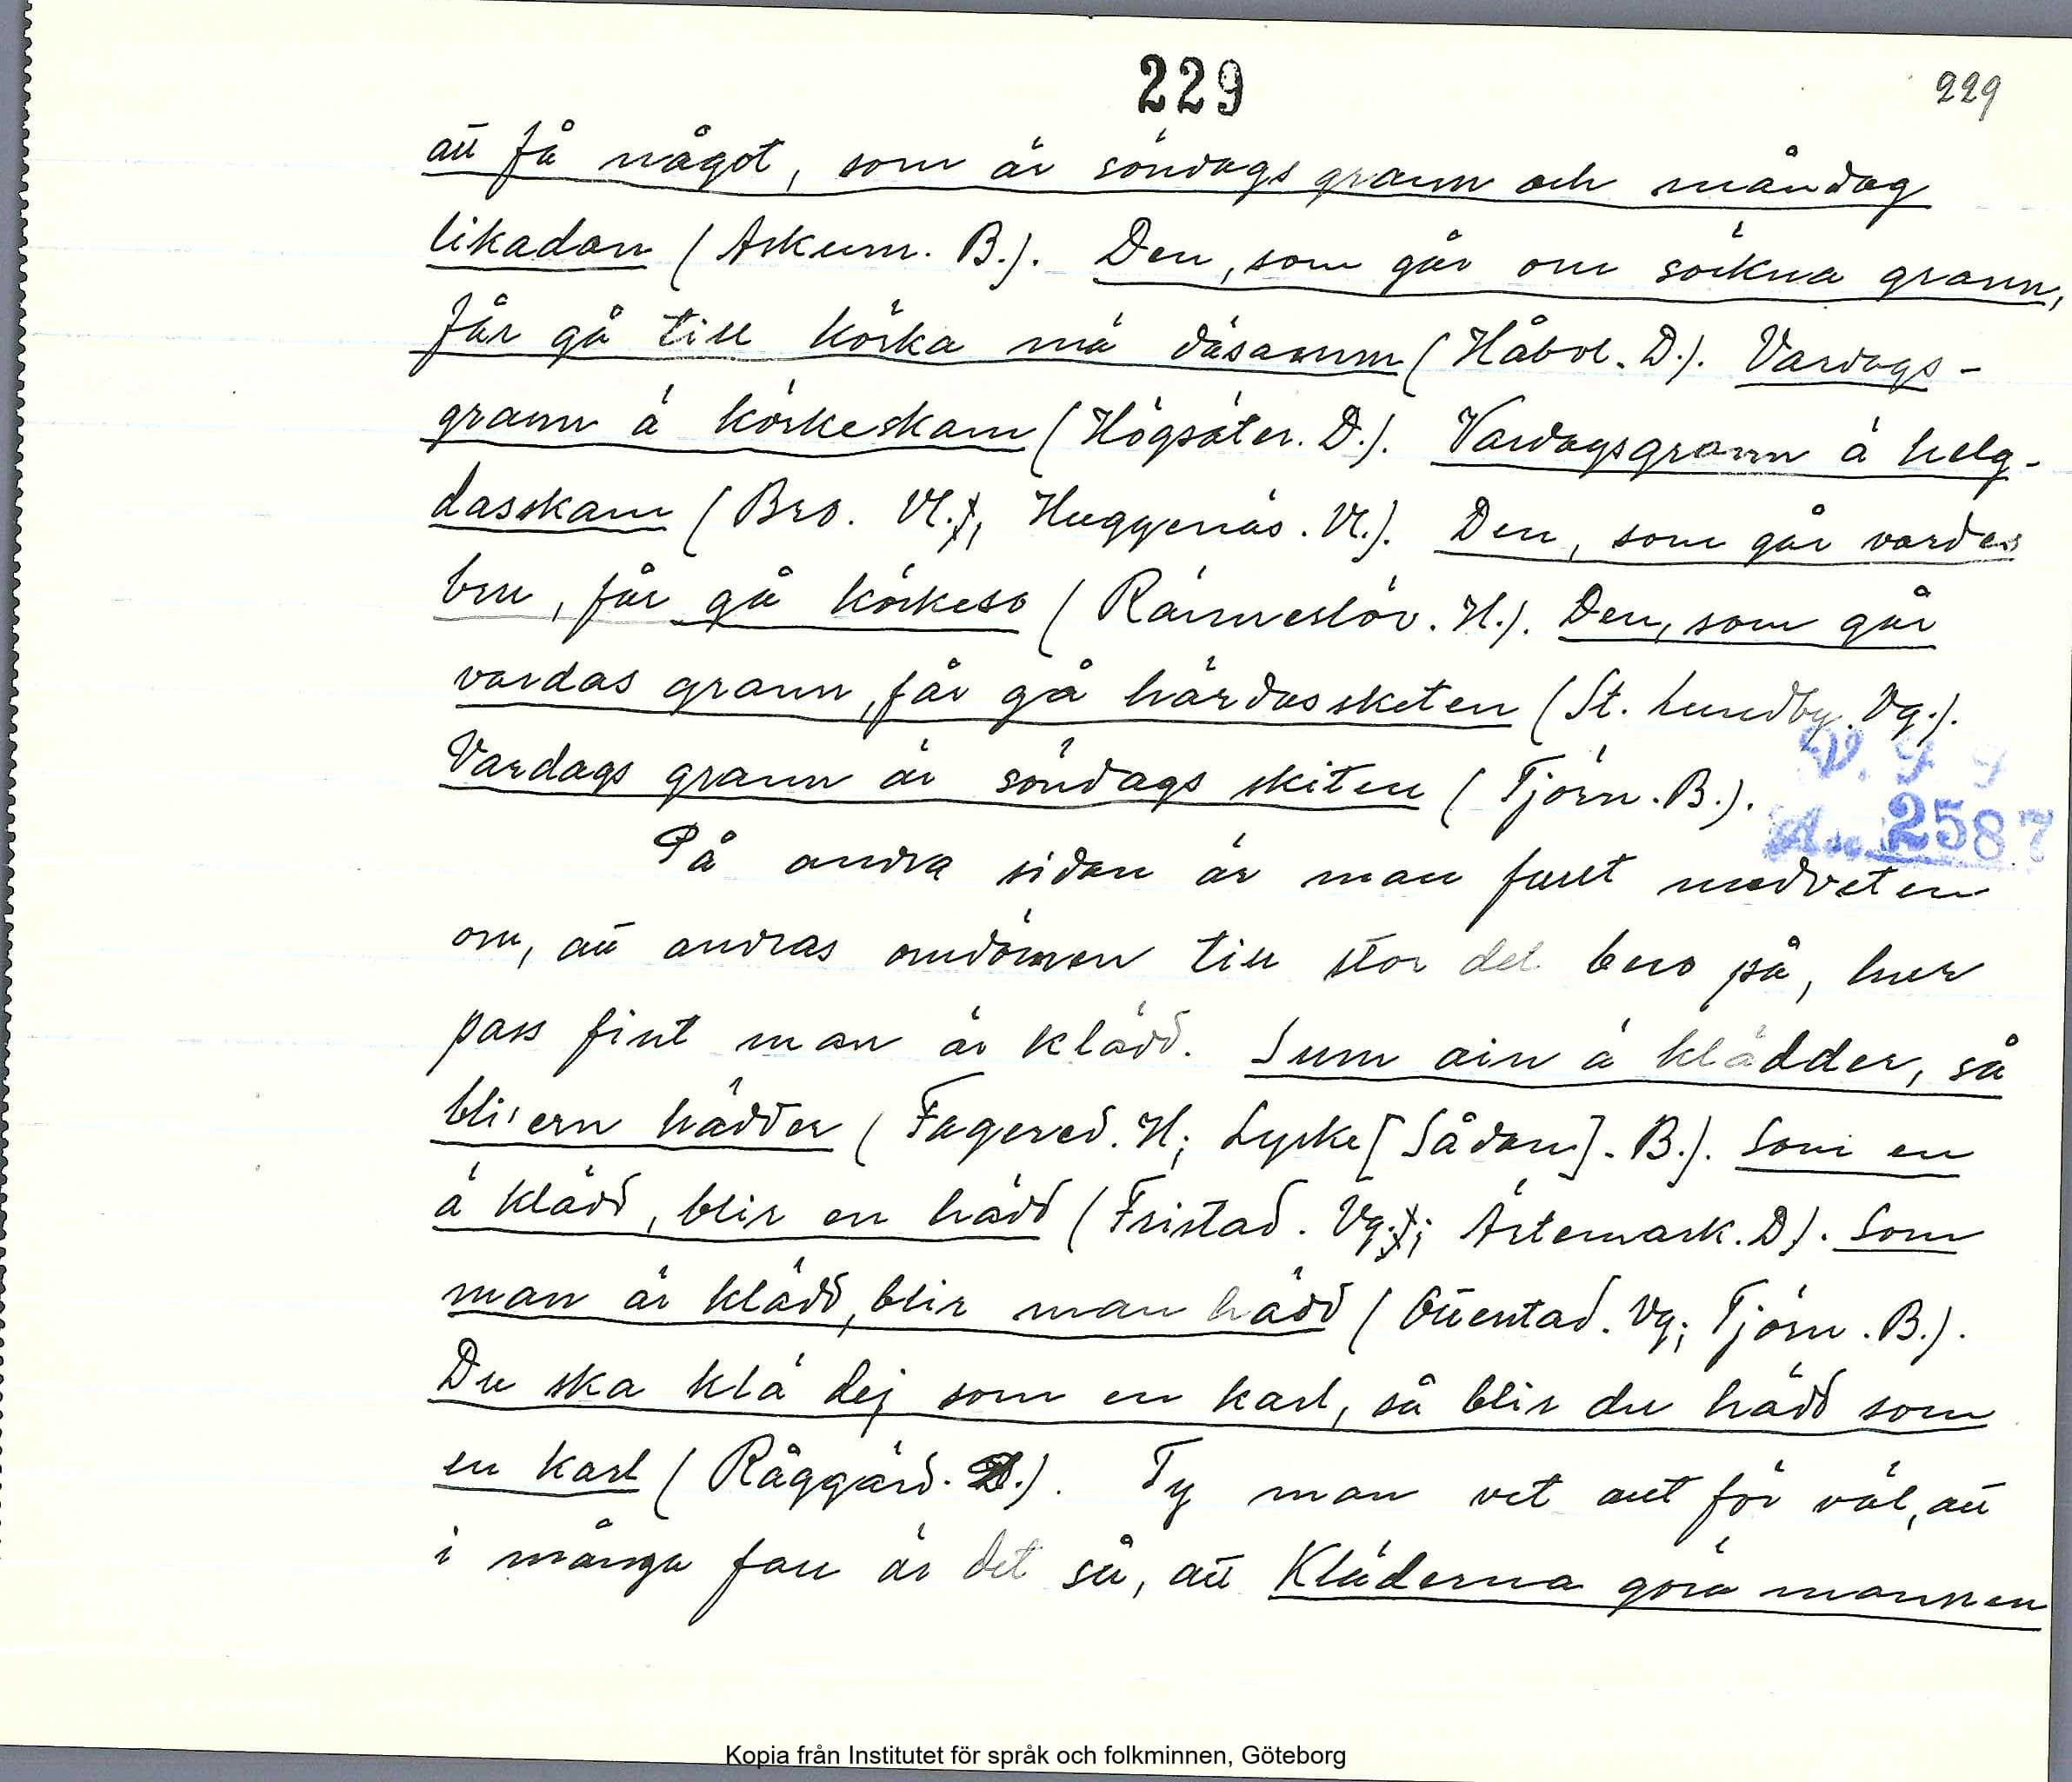 229
229
att få något, som är söndags grann och måndag
likadan (Askum. B.). Den, som går om sökna grann,
får gå till körka mä däsamm (Håbol. D.). Vardags-
grann ä körkeskam (Högsäter. D.). Vardagsgrann ä helg-
dasskam (Bro. Vl., Huggenäs. Vl.). Den, som går vardes
bru, får gå körkeso (Ränneslöv. H.). Den, som går
vardas grann, får gå härdassketen (St. Lundby. Vg.).
Vardags grann är söndags skiten (Tjörn. B.).
V. G. F.
Acc. 2587
På andra sidan är man fullt medveten
om, att andras omdömen till stor del bero på, hur
pass fint man är klädd. Sum ain ä klädder, så
bli'ern hädder (Fagered. H; Lyrke [Sådan]. B.). Som en
ä klädd, blir en hädd (Fristad. Vg.; Ärtemark. D). Som
man är klädd, blir man hädd (Ottestad. Vg; Tjörn. B.).
Du ska klä dej som en karl, så blir du hädd som
en karl (Råggärd. D.). Ty man vet allt för väl, att
i många fall är det så, att Kläderna göra mannen
Kopia från Institutet för språk och folkminnen, Göteborg